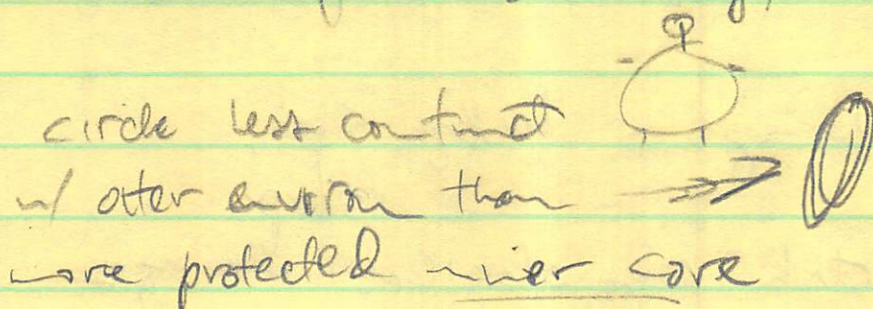 circle less contact
w/ outer environ than
more protected inner core